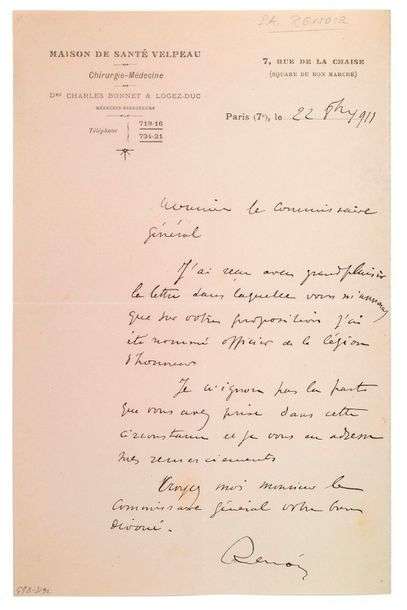 P.A. RENOIR
MAISON DE SANTÉ VELPEAU
7, RUE DE LA CHAISE
Chirurgie-Médecine
(SQUARE DU BON MARCHÉ)
Drs CHARLES BONNET & LOGEZ-DUC
MÉDECINS-DIRECTEURS
Téléphone 719-16
734-21
Paris (7e), le 22 8bre 1911
Monsieur le Commissaire
Général
J'ai reçu avec grand plaisir
la lettre dans laquelle vous m'annoncez
que sur votre proposition j'ai
été nommé officier de la légion
d'honneur
Je n'ignore pas la part
que vous avez prise dans cette
circonstance et je vous en adresse
mes remerciements
Croyez moi monsieur le
Commissaire général votre bien
dévoué.
Renoir